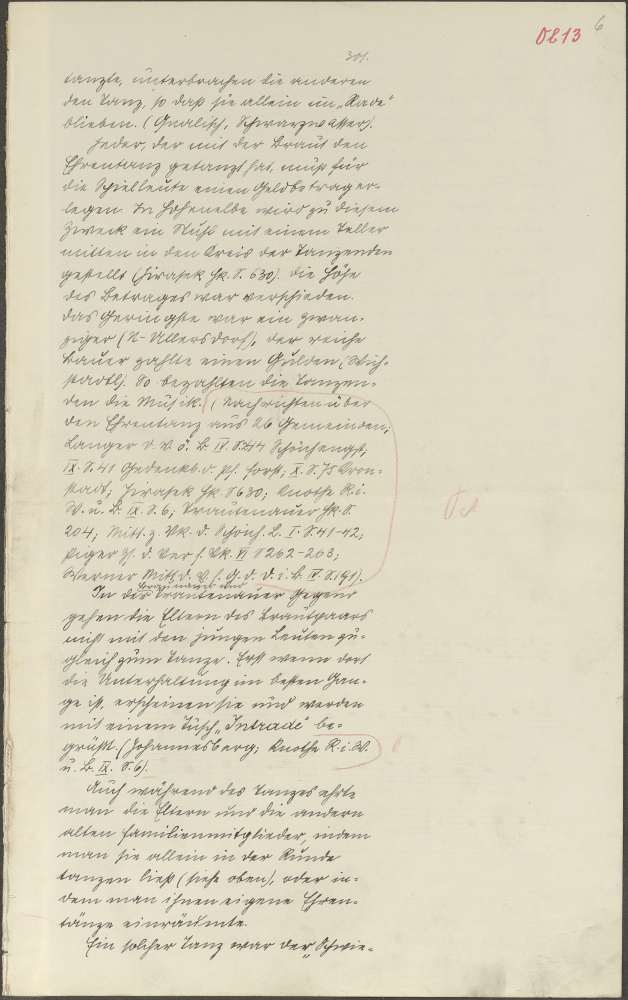 6
Ob13
301.
tanzte, unterbrachen die anderen
den Tanz, so daß sie allein im „Rade“
blieben. (Gnalisch, Schwarzwasser).
Jeder, der mit der Braut den
Ehrentanz getanzt hat, muß für
die Spielleute einen Geldbetrag er-
legen. In Hohenelbe wird zu diesem
Zweck ein Stuhl mit einem Teller
mitten in den Kreis der Tanzenden
gestellt (Jirasek Hk. S. 630). Die Höhe
des Betrages war verschieden.
Das Geringste war ein Zwan-
ziger (N-Ullersdorf), der reiche
Bauer zahlte einen Gulden, (Wich-
stadtl). So bezahlten die Tanzen-
den die Musik. (Nachrichten über
den Ehrentanz aus 26 Gemeinden;
Langer D. V. ö. B. IV. S. 44 Schönhengst,
IX. S. 41 Gedenkb. d. Pf. Horst; X. S. 75 Kron-
stadt; Jirasek Hk S 630; Knothe R. i.
W. u. B. IX. S. 6; Trautenauer Hk. S.
204; Mitt. z. Vk. d. Schönh. L. I. S. 41-42;
Piger Z. d. Ver f. Vk. VI S 262-263;
Werner Mitt. d. V. f. G. d. D. i. B. IV. S. 191).
Braunauer und
In der Trautenauer Gegend
gehen die Eltern des Brautpaars
nicht mit den jungen Leuten zu-
gleich zum Tanze. Erst wenn dort
die Unterhaltung im besten Gan-
ge ist, erscheinen sie und werden
mit einem Tusch „Intrade“ be-
grüßt. (Johannesberg; Knothe R. i. W.
u. B. IX. S. 6).
Auch während des Tanzes ehrte
man die Eltern und die andern
alten Familienmitglieder, indem
man sie allein in der Runde
tanzen ließ (siehe oben), oder in-
dem man ihnen eigene Ehren-
tänze einräumte.
Ein solcher Tanz war der „Schwie-